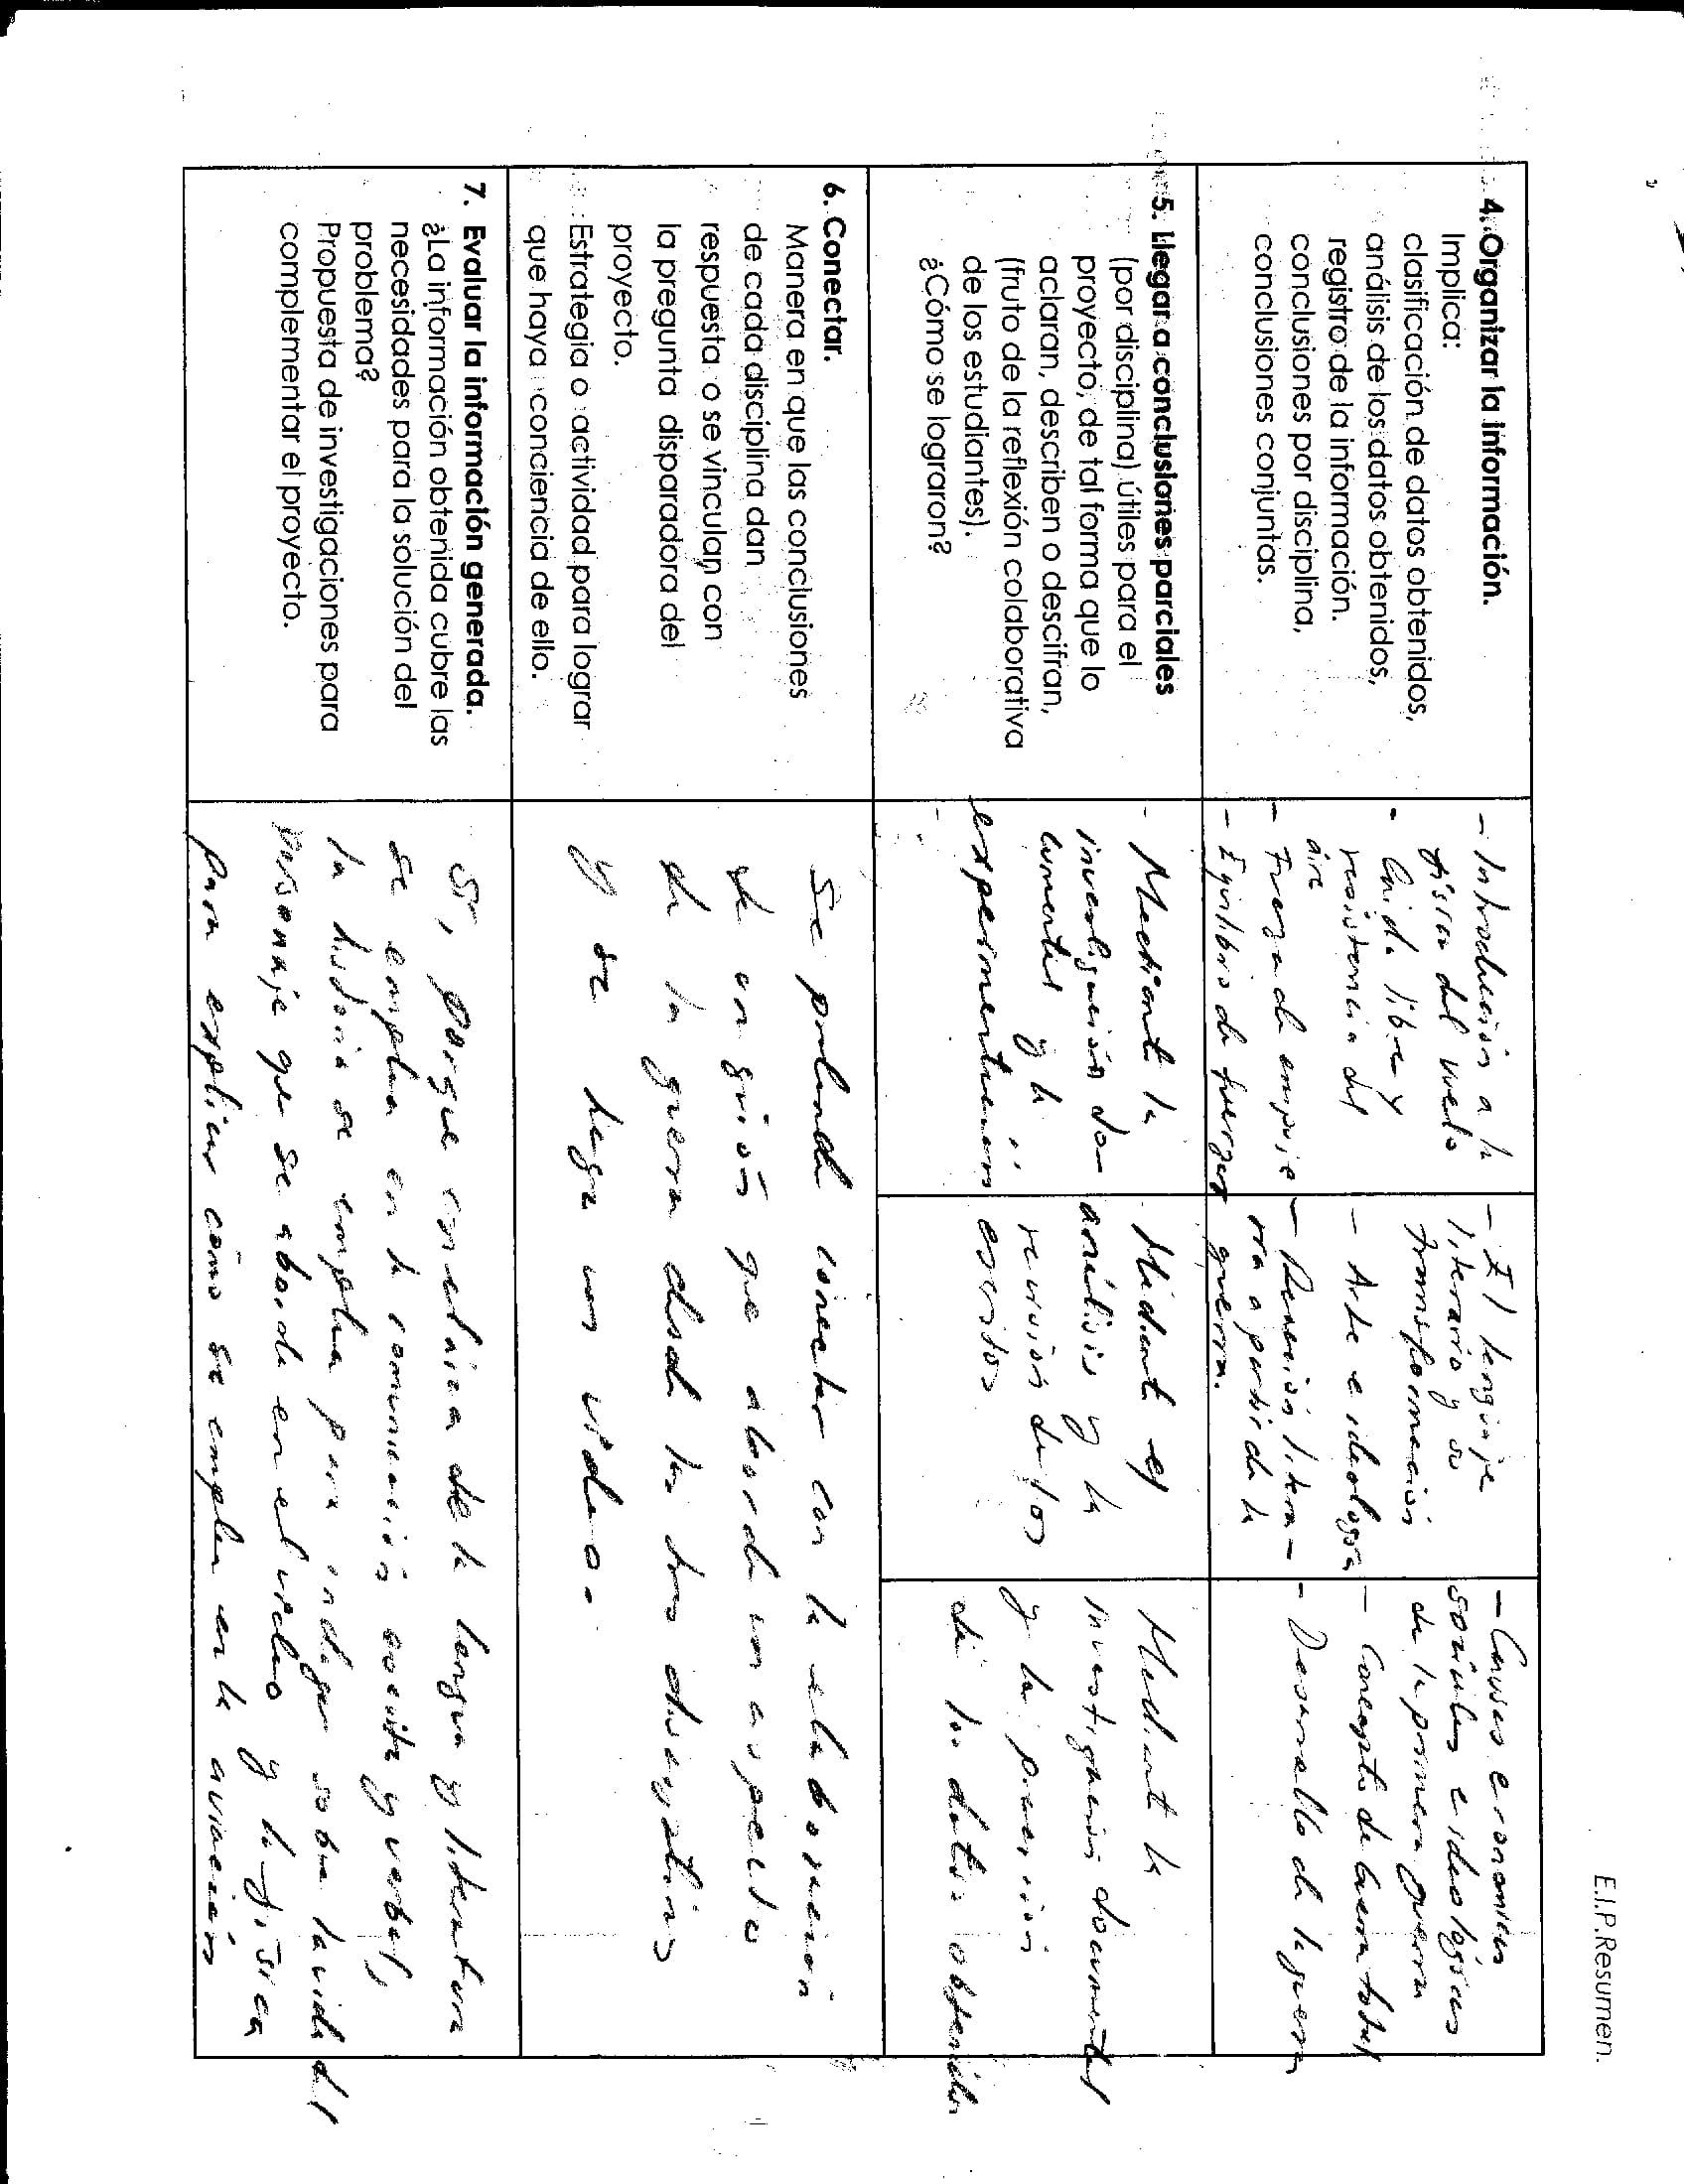 E.I.P.Resumen.
4. Organizar la información.
Implica:
clasificación de datos obtenidos,
análisis de los datos obtenidos,
registro de la información.
conclusiones por disciplina,
conclusiones conjuntas.
- Introducción a la
física del vuelo
- Caída libre y
resistencia del
aire
- Fuerza de empuje
- Equilibrio de fuerzas
- El lenguaje
literario y su
transformación
- Arte e ideología
- Creación litera-
ria a partir de la
guerra.
- Causas económicas
sociales e ideológicas
de la primera guerra
- Concepto de Guerra total
- Desarrollo de la guerra
5. Llegar a conclusiones parciales
(por disciplina) útiles para el
proyecto, de tal forma que lo
aclaran, describen o descifran,
(fruto de la reflexión colaborativa
de los estudiantes).
¿Cómo se lograron?
- Mediante la
investigación do-
cumental y la
experimentación
Mediante el
análisis y la
revisión de los
escritos
Mediante la
investigación documental
y la precisión
de los datos obtenidos
6. Conectar.
Manera en que las conclusiones
de cada disciplina dan
respuesta o se vinculan con
la pregunta disparadora del
proyecto.
Estrategia o actividad para lograr
que haya conciencia de ello.
Se pretende conectar con la elaboración
de un guión que aborde un aspecto
de la guerra desde las tres disciplinas
y se haga un video.
7. Evaluar la información generada.
¿La información obtenida cubre las
necesidades para la solución del
problema?
Propuesta de investigaciones para
complementar el proyecto.
Sí, porque la de la lengua y literatura
se emplea en la comunicación escrita y verbal,
la historia se emplea para indagar sobre la vida del
personaje que se aborda en el video y la física
para explicar cómo se emplea en la aviación